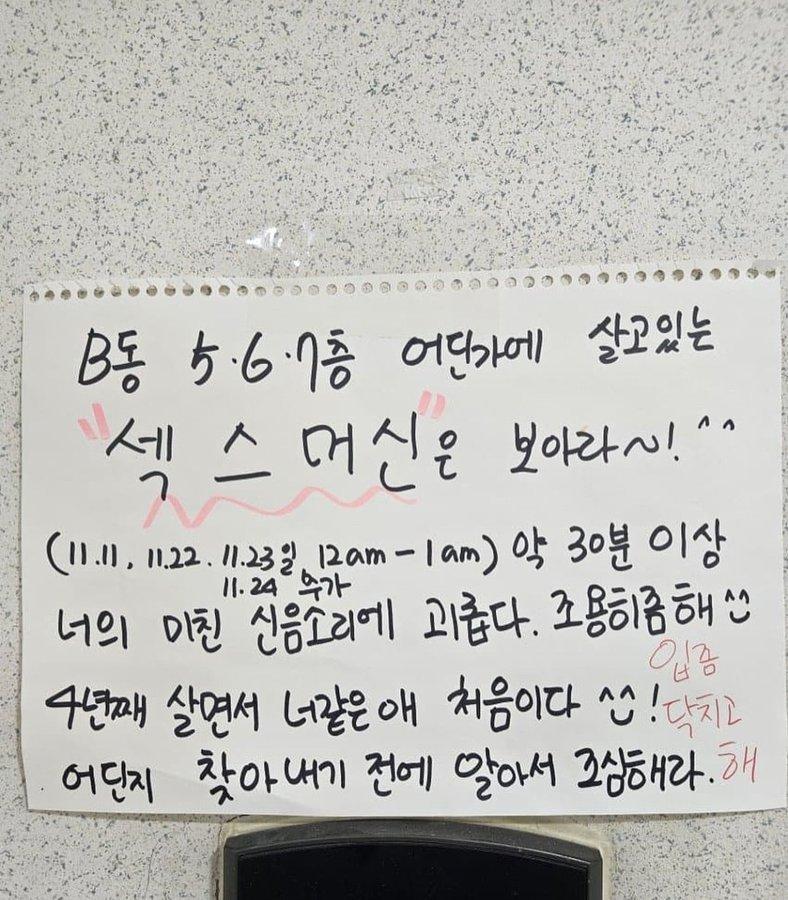 B동 5.6.7층 어딘가에 살고있는
"섹스머신"은 보아라~! ^^
(11.11, 11.22. 11.23일 12am-1am) 약 30분 이상
11.24 추가
너의 미친 신음소리에 괴롭다. 조용히좀해^^
입좀
4년째 살면서 너같은애 처음이다 ^^!
닥치고
어딘지 찾아내기 전에 알아서 조심해라.
해